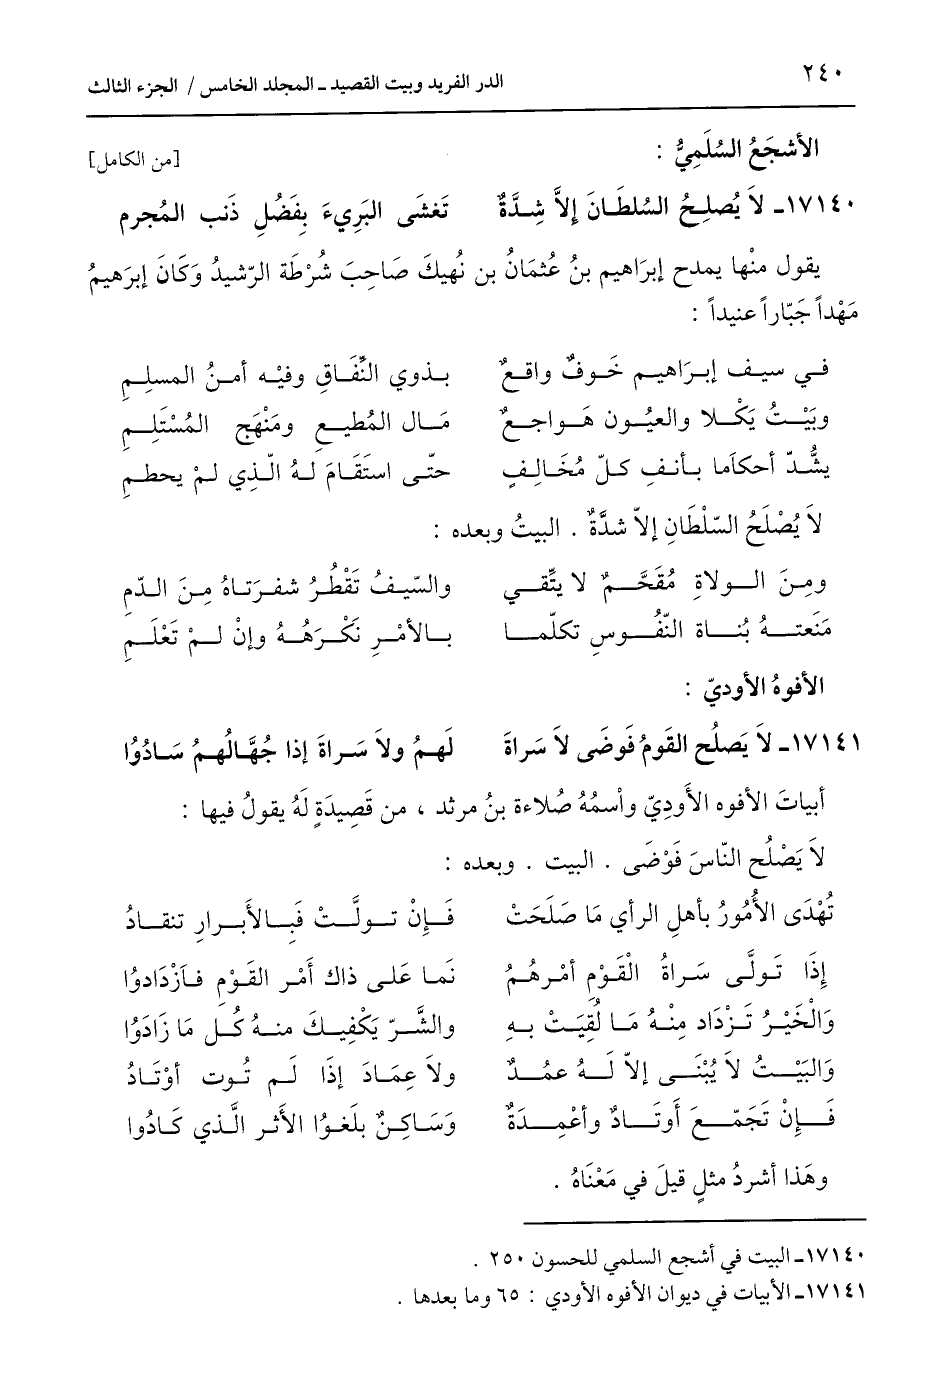 ٢٤٠
الدر الفريد وبيت القصيد ــ المجلد الخامس / الجزء الثالث
الأشجَعُ السُلَمِيُّ :
[من الكامل]
١٧١٤٠ــ لاَ يُصلِحُ السُلطَانَ إلاَّ شِدَّةٌ تَغشَى البَرِيءَ بِفَضْلِ ذَنب المُجرم
يقول منْها يمدح إبرَاهيم بنُ عُثمَانُ بن نُهيكَ صَاحِبَ شُرطَة الرّشيدُ وَكَانَ إبرَهيمُ
مَهْداً جَبّاراً عنيداً :
في سيف إبرَاهيم خَوفٌ واقعٌ بذوي النِّفَاقِ وفيْه أمنُ المسلِمِ
وبَيْتُ يَكْلا والعيُون هَواجعٌ مَال المُطيعِ ومَنْهج المُسْتَلِمِ
يشُدّ أحكاَما بأنفِ كلّ مُخَالِفٍ حتّى استَقَامَ لهُ الّذي لمْ يحطمِ
لاَ يُصْلَحُ السّلْطَانِ إلاّ شدَّةٌ . البيتُ وبعده :
ومِنَ الولاةِ مُقَحَّمٌ لا يتَّقي والسّيفُ تَقْطُرُ شفرَتاهُ مِنَ الدّمِ
مَنَعتهُ بُناة النّفُوسِ تكلّما بالأمْرِ نَكْرَهُهُ وإنْ لمْ تَعْلَمِ
الأفوهُ الأوديّ :
١٧١٤١ــ لاَ يَصلُح القَومُ فَوضَى لاَ سَراةَ لَهمُ ولاَ سَراةَ إذا جُهَّالُهمُ سَادُوُا
أبياتَ الأفوه الأَودِيّ وأسمُهُ صُلاءة بنُ مرثد ، من قَصِيدَةٍ لَهُ يقولُ فيها :
لاَ يَصْلُح النّاسَ فَوْضَى . البيت . وبعده :
تُهْدَى الأُمُورُ بأهلِ الرأي مَا صَلَحَتْ فَإنْ تولَّتْ فَبالأبرارِ تنقادُ
إذَا تَولَّى سَراةُ الْقَوْمِ أمْرهُمُ نَما عَلى ذاك أَمْر القَوْمِ فَازْدَادوُا
وَالْخَيْرُ تَزْدَاد مِنْهُ مَا لُقِيَتْ بهِ والشَّرّ يَكْفِيكَ منهُ كُل مَا زَادَوُا
وَالبَيْتُ لاَ يُبْنَى إلاّ لَهُ عمُدٌ ولاَ عِمَادَ إذَا لَم تُوت أوْتَادُ
فَإنْ تَجَمّعَ أوتَادٌ وأعْمِدَةٌ وَسَاكِنٌ بلَغوُا الأَثر الَّذي كَادُوا
وهَذا أشردُ مثلٍ قيلَ في مَعْنَاهُ .
١٧١٤٠ــ البيت في أشجع السلمي للحسون ٢٥٠ .
١٧١٤١ــ الأبيات في ديوان الأفوه الأودي : ٦٥ وما بعدها .